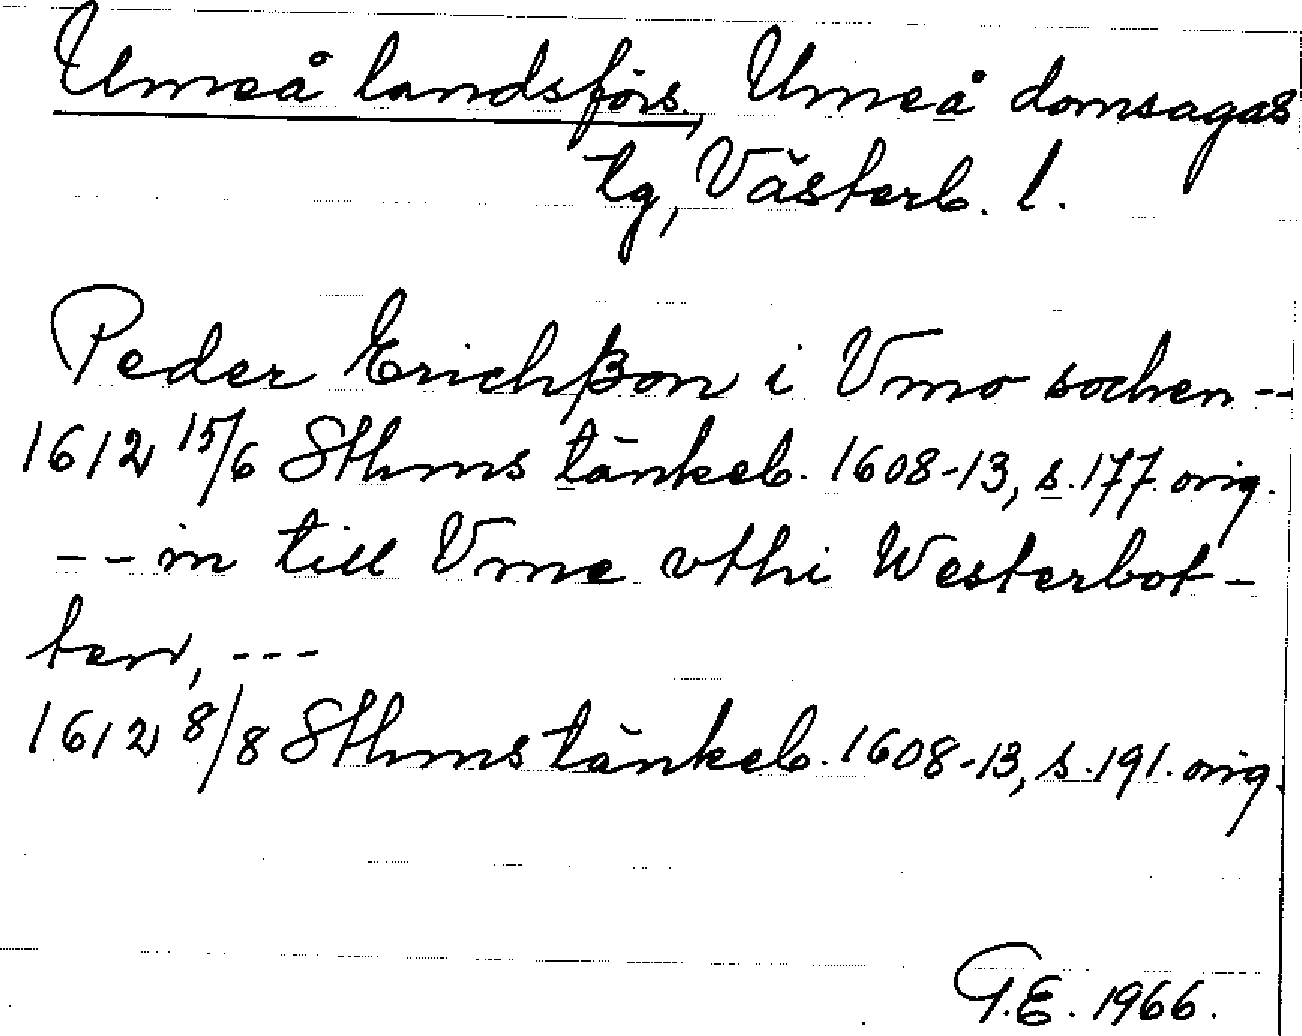 Umeå landsförs., Umeå domsagas
tg, Västerb. l.
Peder Erichßon i Vmo sochen --
1612 15/6 Sthms tänkeb. 1608-13, s. 177. orig.
-- in till Vme vthi Westerbot-
ten, ---
1612 8/8 Sthms tänkeb. 1608-13, s. 191. orig.
G.E. 1966.